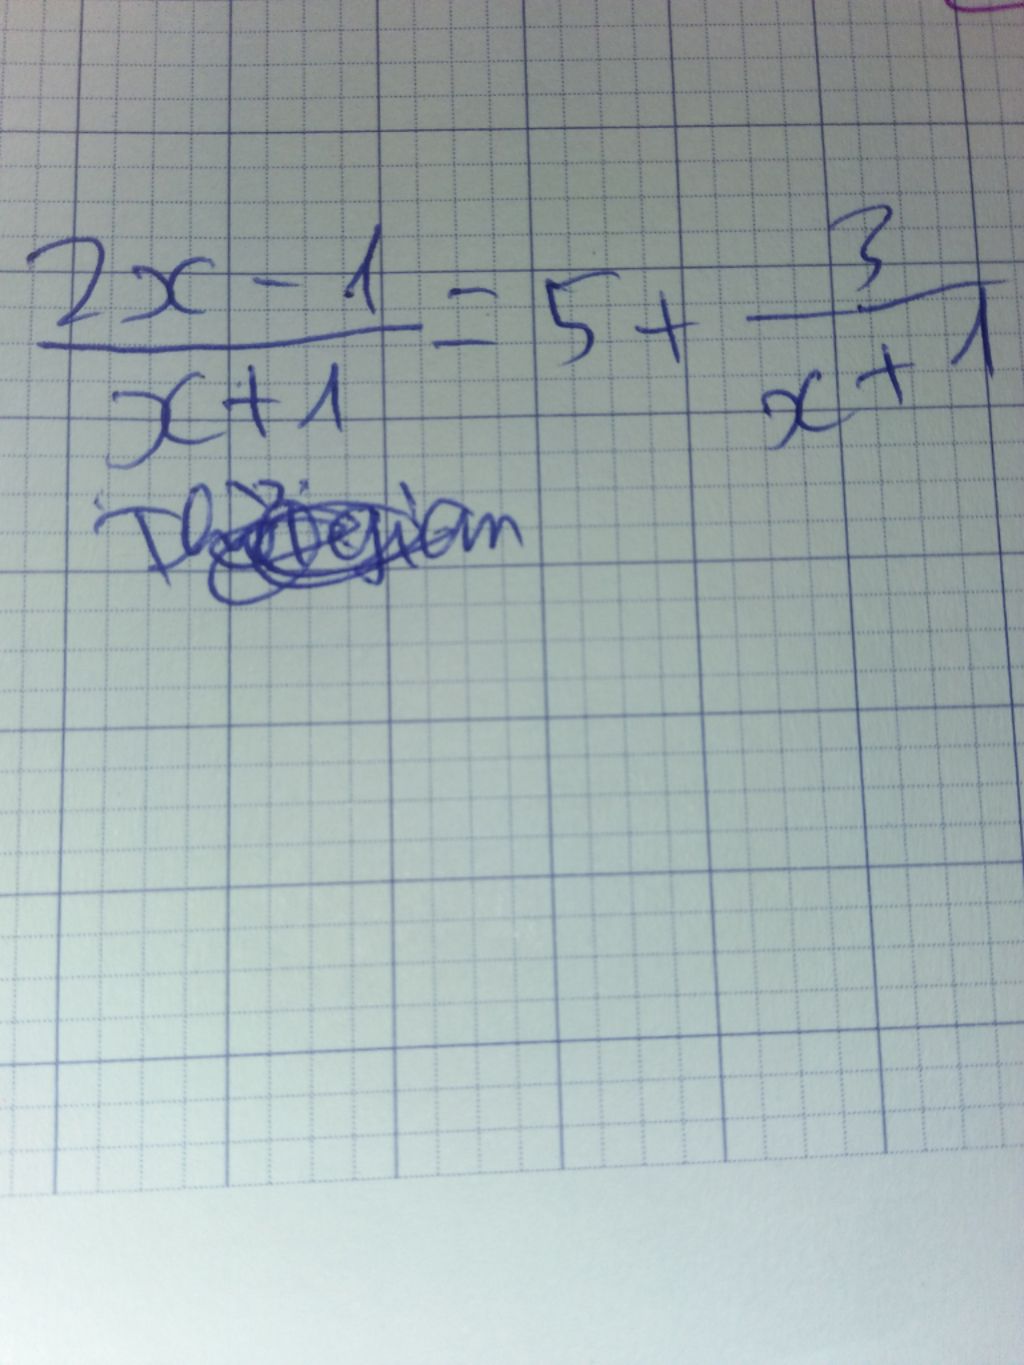 2x - 1 / x + 1 = 5 + 3 / x + 1